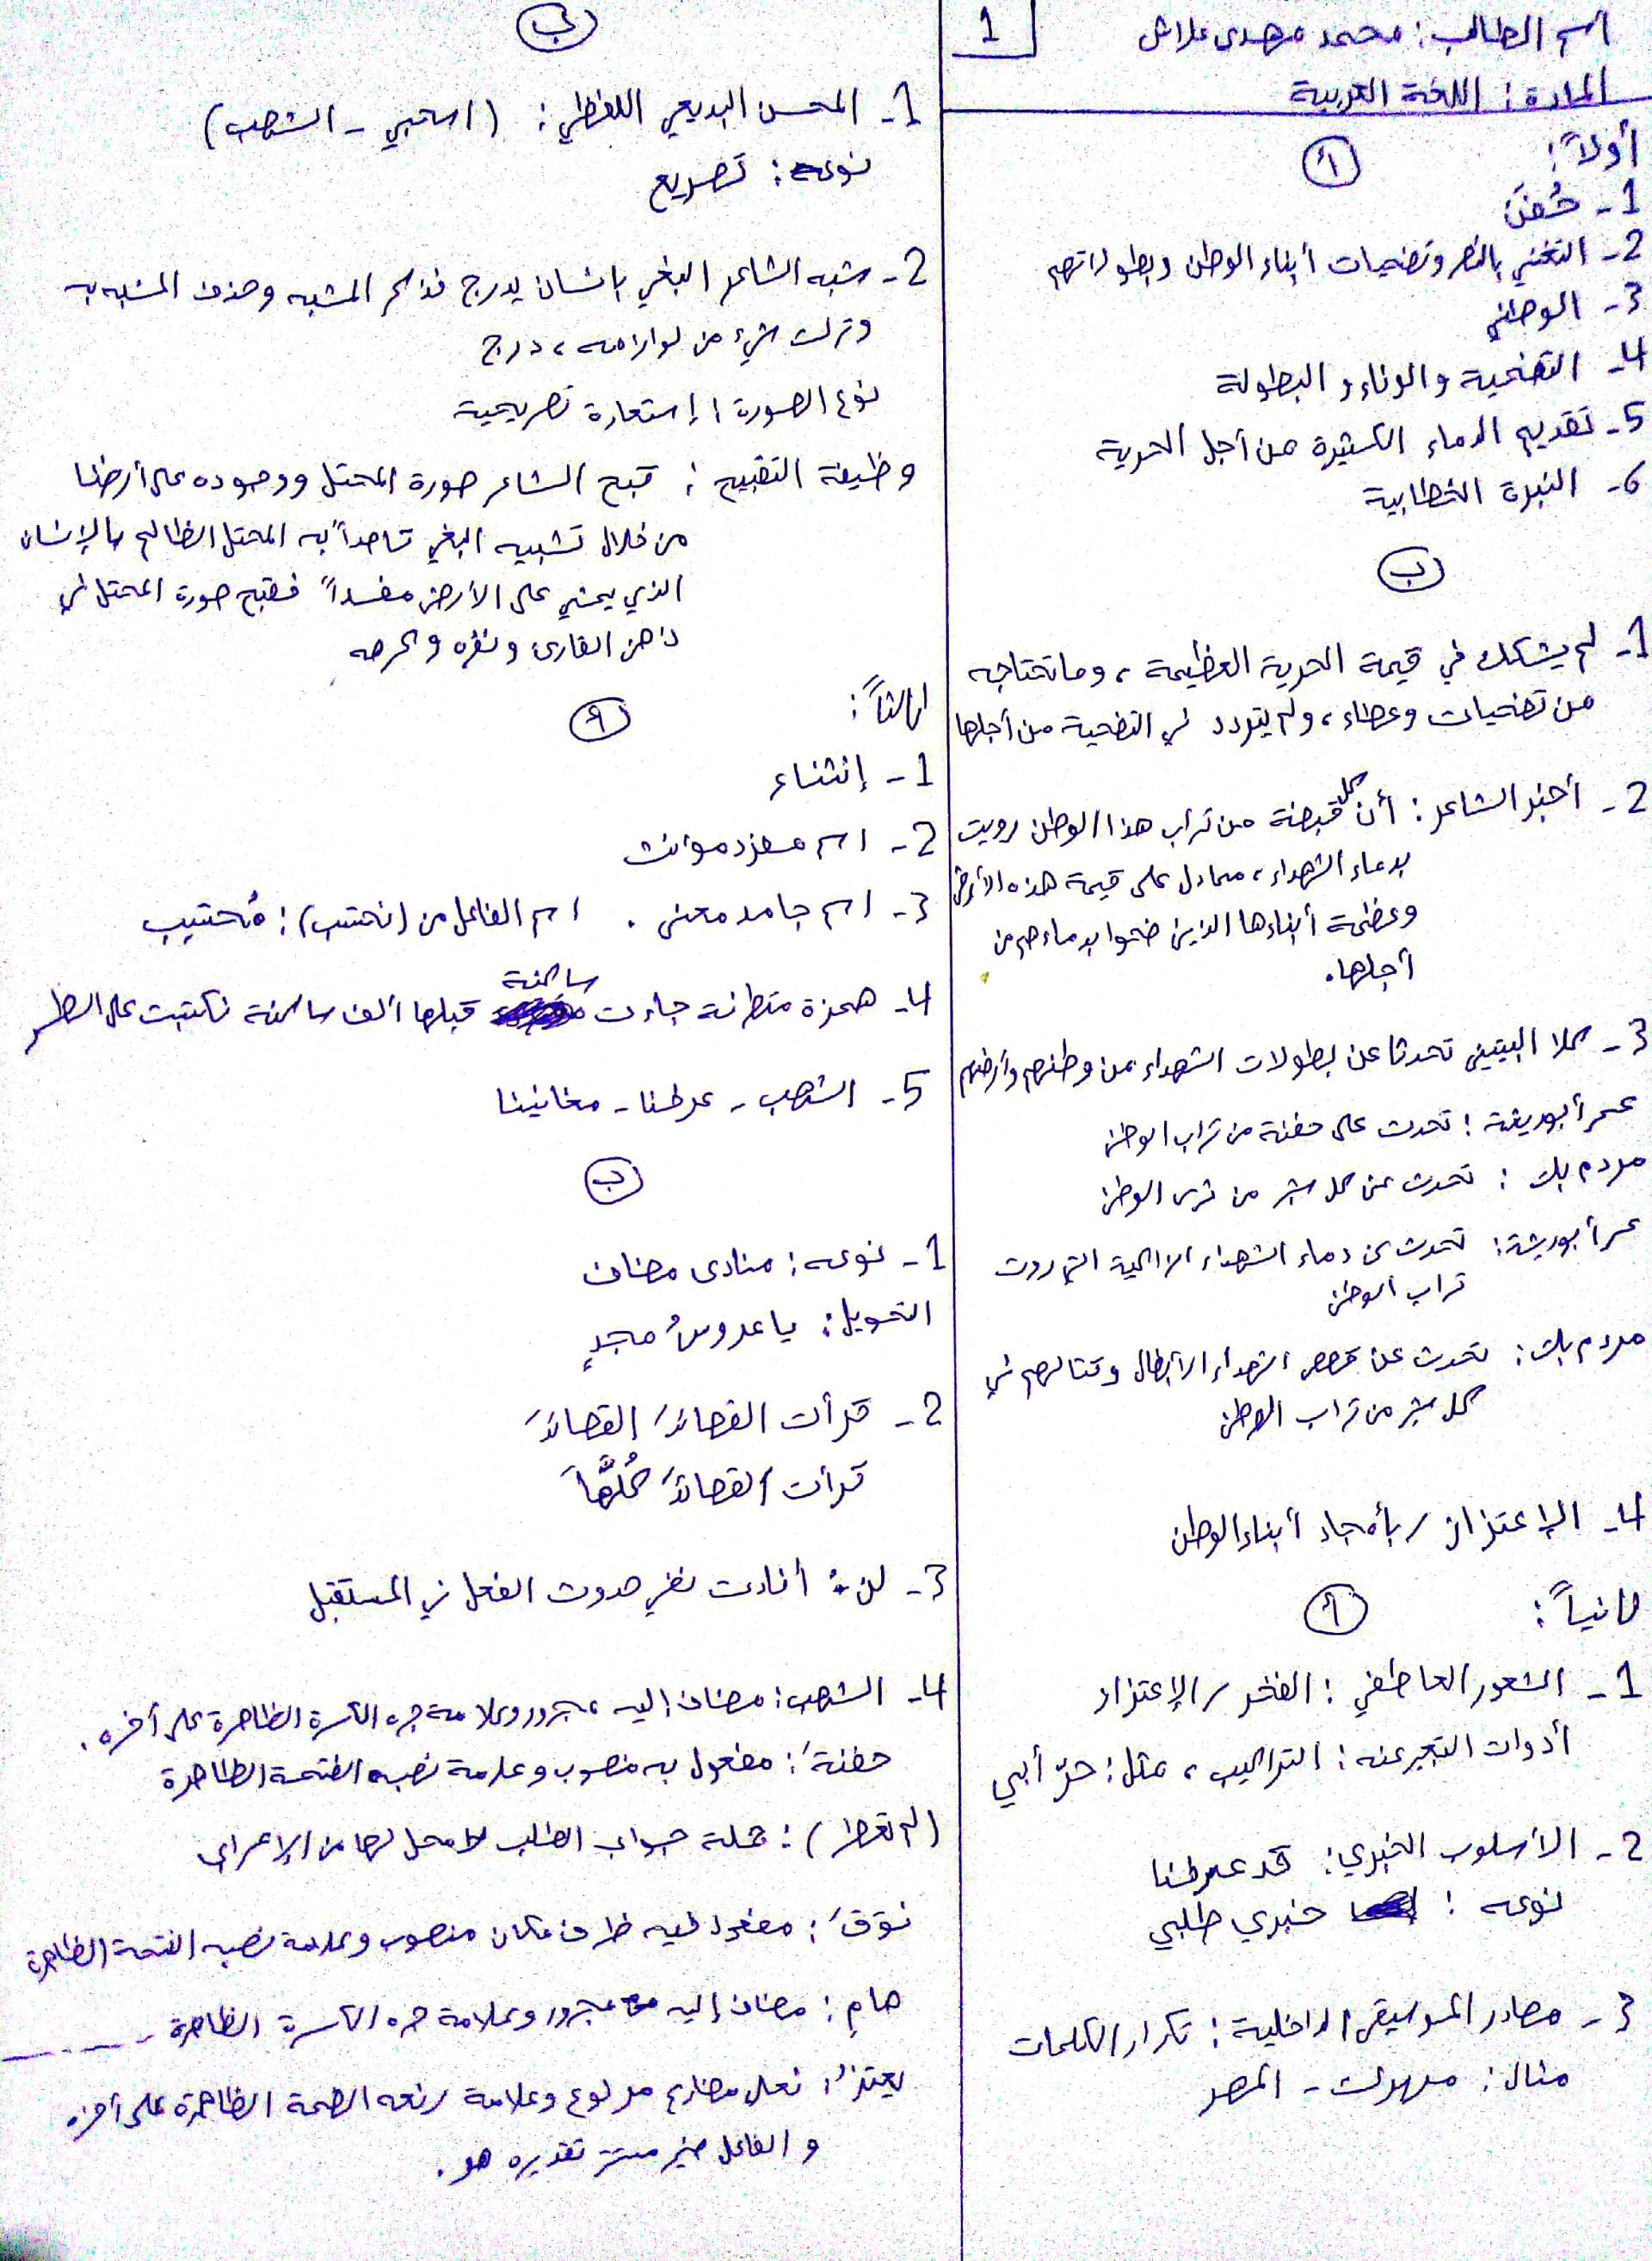 اسم الطالب: محمد مهدي علاش
1
المادة: اللغة العربية
أولاً:
أ
1- حُفَنَ
2- التغني بالنصر وتضحيات أبناء الوطن وبطولاتهم
3- الوطني
4- التضحية والوفاء والبطولة
5- تقديم الدماء الكثيرة من أجل الحرية
6- النبرة الخطابية
ب
1- لم يشكك في قيمة الحرية العظيمة، وما تحتاجه
من تضحيات وعطاء، ولم يتردد في التضحية من أجلها
2- أخبر الشاعر: أن كل قبضة من تراب هذا الوطن رويت
بدماء الشهداء، مما دل على قيمة هذه الأرض
وعظمة أبناءها الذين ضحوا بدماءهم من
أجلها.
3- كلا البيتين تحدثا عن بطولات الشهداء عن وطنهم وأرضهم
عمر أبو ريشة: تحدث على حفنة من تراب الوطن
مردم بك: تحدث عن كل شبر من ثرى الوطن
عمر أبو ريشة: تحدث عن دماء الشهداء الزاكية التي روت
تراب الوطن
مردم بك: تحدث عن قصص الشهداء الأبطال وقتالهم في
كل شبر من تراب الوطن
4- الإعتزاز بأمجاد أبناء الوطن
ثانياً:
أ
1- الشعور العاطفي: الفخر / الإعتزاز
أدوات التعبير عنه: التراكيب، مثل: حرّ أبي
2- الأسلوب الخبري: قد عرفنا
نوعه: خبري طلبي
3- مصادر الموسيقى الداخلية: تكرار الكلمات
مثال: مهرك - المهر
ب
1- المحسن البديعي اللفظي: (اسحبي - الشهب)
نوعه: تصريع
2- شبه الشاعر البغي بإنسان يدرج فذكر المشبه وحذف المشبه به
وترك شيء من لوازمه، درج
نوع الصورة: إستعارة تصريحية
وظيفة التقبيح: قبح الشاعر صورة المحتل ووجوده على أرضنا
من خلال تشبيه البغي قاصداً به المحتل الظالم بالإنسان
الذي يمشي على الأرض مفسداً فقبح صورة المحتل في
ذهن القارئ ونفره وكرهه
ثالثاً:
أ
1- إنثناء
2- اسم مفرد مؤنث
3- اسم جامد معنى. اسم الفاعل من (نحتسب): مُحتسِب
4- همزة متطرفة جاءت ساكنة قبلها ألف ساكنة فكتبت على السطر
5- الشهب - عرفنا - مغانينا
ب
1- نوعه: منادى مضاف
التحويل: يا عروسُ مجدٍ
2- قرأت القصائدَ القصائدَ
قرأت القصائدَ كُلَّهَا
3- لن: أفادت نفي حدوث الفعل في المستقبل
4- الشهب: مضاف إليه مجرور وعلامة جره الكسرة الظاهرة على أخره.
حفنةً: مفعول به منصوب وعلامة نصبه الفتحة الظاهرة
(لم تعطر): جملة جواب الطلب لا محل لها من الإعراب
فوقَ: مفعول فيه ظرف مكان منصوب وعلامة نصبه الفتحة الظاهرة
هامِ: مضاف إليه مجرور وعلامة جره الكسرة الظاهرة -----
يعتزُ: فعل مضارع مرفوع وعلامة رفعه الضمة الظاهرة على أخره
والفاعل ضمير مستتر تقديره هو.